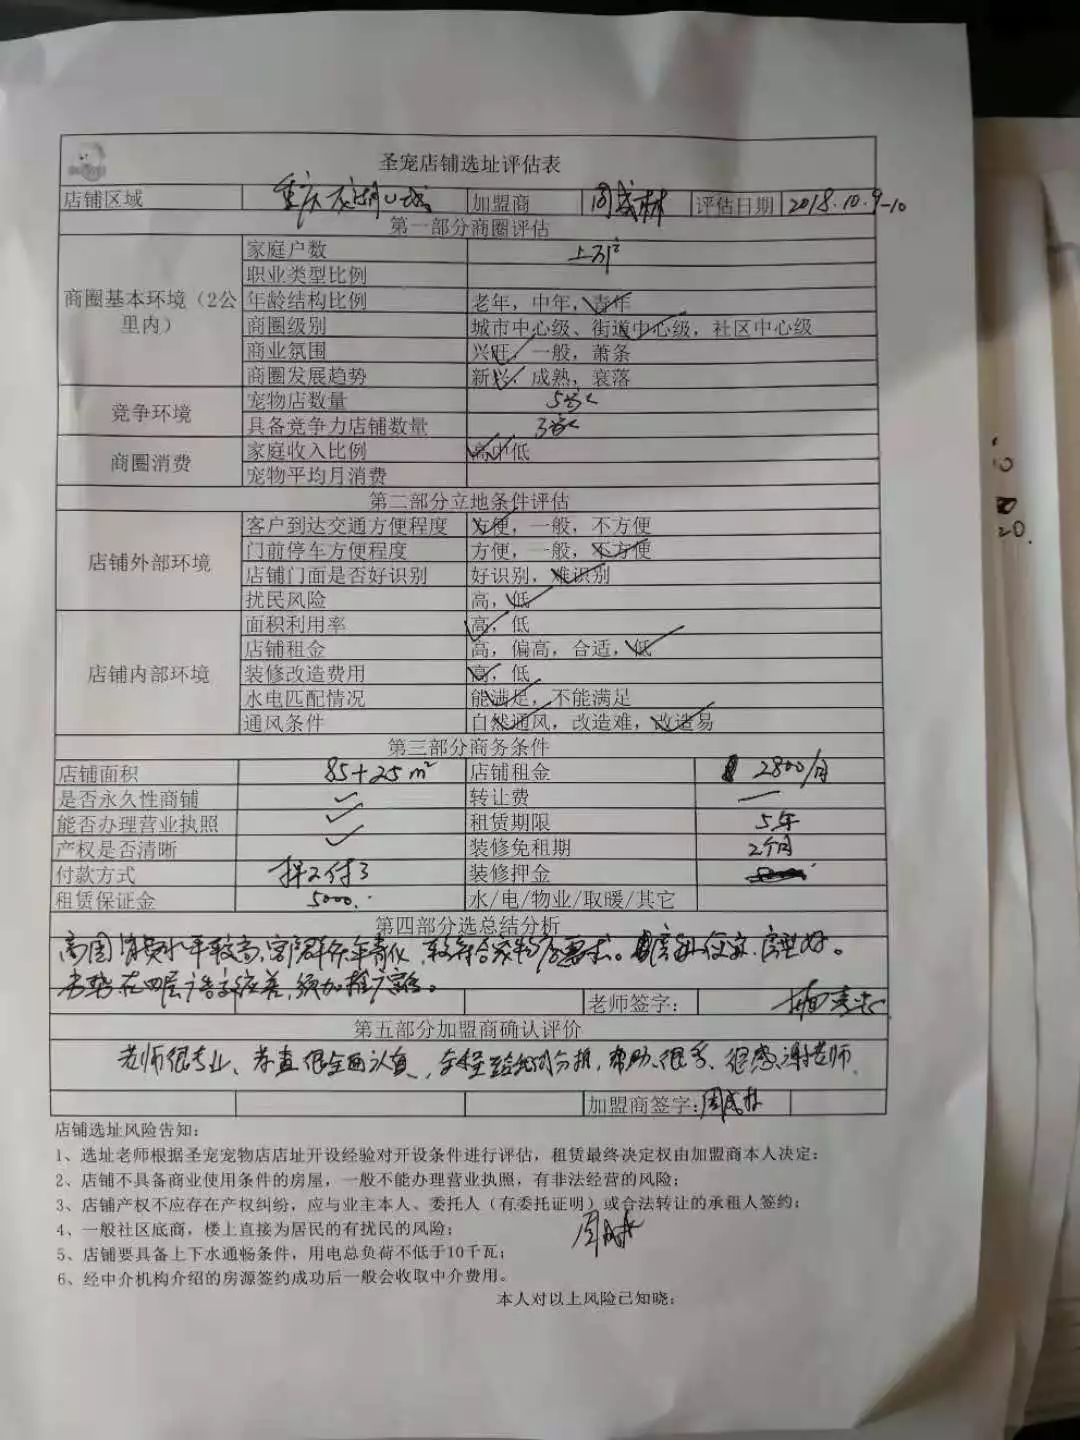 圣宠店铺选址评估表
店铺区域 重庆 加盟商 周成林 评估日期 2018.10.9-10
第一部分商圈评估
商圈基本环境（2公里内）
家庭户数 上万户
职业类型比例
年龄结构比例 老年，中年，青年
商圈级别 城市中心级、街道中心级，社区中心级
商业氛围 兴旺，一般，萧条
商圈发展趋势 新兴，成熟，衰落
竞争环境
宠物店数量 5家
具备竞争力店铺数量 3家
商圈消费
家庭收入比例 高中低
宠物平均月消费
第二部分立地条件评估
店铺外部环境
客户到达交通方便程度 方便，一般，不方便
门前停车方便程度 方便，一般，不方便
店铺门面是否好识别 好识别，难识别
扰民风险 高，低
店铺内部环境
面积利用率 高，低
店铺租金 高，偏高，合适，低
装修改造费用 高，低
水电匹配情况 能满足，不能满足
通风条件 自然通风，改造难，改造易
第三部分商务条件
店铺面积 85+25m² 店铺租金 2800/月
是否永久性商铺 ✓ 转让费 —
能否办理营业执照 ✓ 租赁期限 5年
产权是否清晰 ✓ 装修免租期 2个月
付款方式 押2付3 装修押金
租赁保证金 5000. 水/电/物业/取暖/其它
第四部分选总结分析
消费水平较高，客群年青化，较符合宠物店。房租便宜，房型好。
劣势在四层广告效应差，须加推广宣传。
老师签字：
第五部分加盟商确认评价
老师很专业、考查很全面认真，全程给我们分析，帮助很多、很感谢老师
加盟商签字：周成林
店铺选址风险告知：
1、选址老师根据圣宠宠物店店址开设经验对开设条件进行评估，租赁最终决定权由加盟商本人决定：
2、店铺不具备商业使用条件的房屋，一般不能办理营业执照，有非法经营的风险；
3、店铺产权不应存在产权纠纷，应与业主本人、委托人（有委托证明）或合法转让的承租人签约；
4、一般社区底商，楼上直接为居民的有扰民的风险；
5、店铺要具备上下水通畅条件，用电总负荷不低于10千瓦；
6、经中介机构介绍的房源签约成功后一般会收取中介费用。
周成林
本人对以上风险已知晓：
10
20.